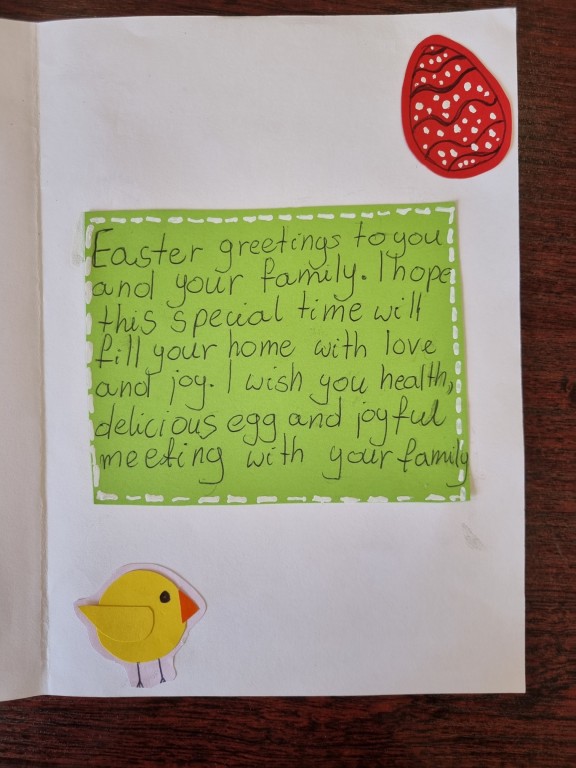 Easter greetings to you
and your family. I hope
this special time will
fill your home with love
and joy. I wish you health,
delicious egg and joyful
meeting with your family